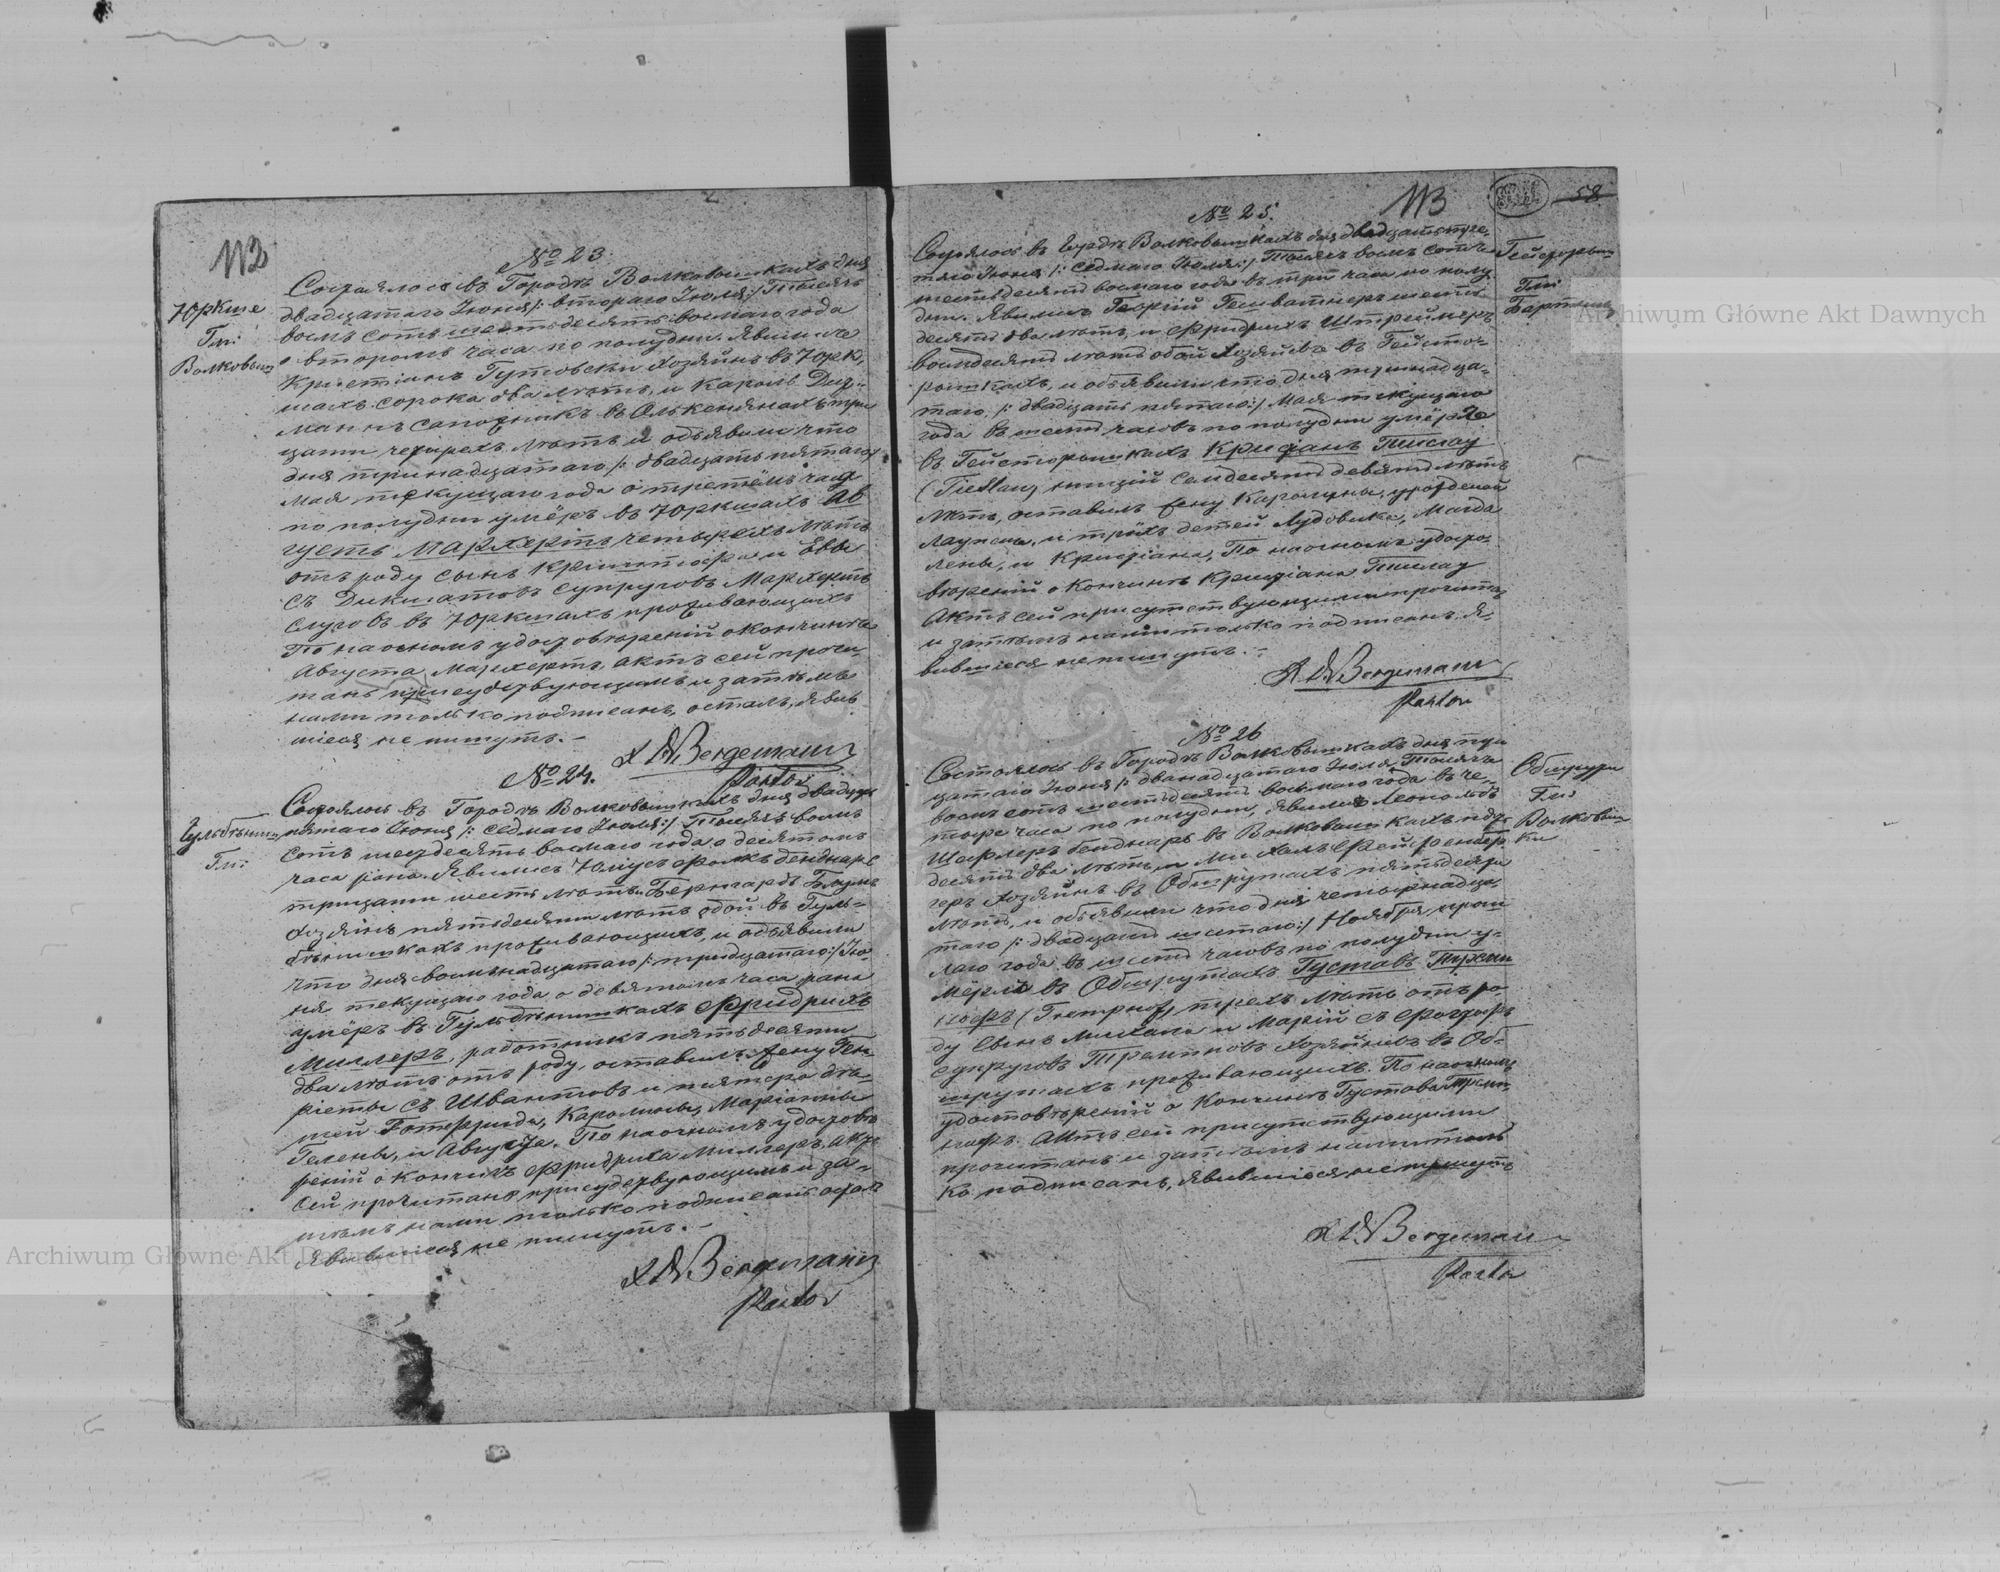 113
№ 23
Юркше
Гм:
Волковыш
Состоялось въ Городѣ Волковышкахъ дня
двадцатаго Іюня /: втораго Іюля :/ Тысяча
восмъ сотъ шестьдесятъ восмаго года
о второмъ часа по полудни. Явились
Христіанъ Гутовски Хозяинъ въ Юрк,
шахъ сорока два лѣтъ, и Кароль Диз-
маннъ сапожникъ въ Олькенянахъ три
цати четырехъ лѣтъ и объявили что
дня тринадцатаго /: двадцать пятаго :/
Мая текущаго года о третёмъ часа
по полудни умёръ въ Юркшахъ Ав
густъ Маркертъ четырехъ лѣтъ
отъ роду сынъ Криштофа и Евы
съ Дикшатовъ супруговъ Маркертъ
слуговъ въ Юркшахъ проживающихъ
По наочномъ удостовѣреній о кончинѣ
Августа Маркертъ, актъ сей прочи
танъ присудствующимъ и затѣмъ
нами только подписанъ, осталъ, явив
шіеся не пишутъ. -
A W Bergemann
Pastor
№ 24.
Гульбѣниш
Гм:
Состоялось въ Городѣ Волковышкахъ дня двадцать
пятаго Іюня /: седмаго Іюля :/ Тысяча восмъ
сотъ шестдесятъ восмаго года о десятомъ
часа рана. Явились Юліусъ Фолкъ денднаръ
трицати шесть лѣтъ. Бернгардъ Блумъ
Хозяинъ пятьдесяти лѣтъ обой въ Гуль-
бѣнишкахъ проживающихъ, и объявили
что дня восмьнадцатаго /: тридцатаго :/ Ію-
ня текущаго года о девятомъ часа рана
умёръ въ Гульбѣнишкахъ Фридрихъ
Миллеръ, работникъ пятьдесяти
два лѣтъ отъ роду, оставилъ жену Ген
ріеты съ Швантовъ и пятера дѣ-
тей Готфрида, Каролины, Маріанны
Гелены, и Августа. По наочномъ удостовѣ
реній о кончинѣ Фридриха Миллеръ, актъ
сей прочитанъ присудствующимъ и за-
тѣмъ нами только подписанъ остал
явившіеся не пишутъ. -
A W Bergemann
Pastor
113
58
№ 25.
Гейсторыш
Гм:
Бартники
Состоялось въ Городѣ Волковышкахъ дня двадцать пя-
таго Іюня /: седмаго Іюля :/ Тысяча восмъ сотъ
шестьдесятъ восмаго года въ три часа по полу
дни. Явились Георгій Гешватнеръ шесть
десятъ два лѣтъ, и Фридрихъ Штреймеръ
восмдесятъ лѣтъ обой Хозяйве въ Гейсто-
рышкахъ, и объявили что дня тринадца-
таго /: двадцать пятаго :/ Мая текущаго
года въ шесть часовъ по полудни умёръ
въ Гейсторышкахъ Крисціанъ Тислау
(Tießlau) нищій семдесятъ девять лѣтъ
лѣтъ, оставилъ жену Каролины, урожденой
и трихъ детей Лудовика, Магда
лены, и Крисціана, По наочномъ удосто-
вѣреній о кончинѣ Крисціана Тислау
Актъ сей присутствующими прочитанъ
и затѣмъ нами только подписанъ. Я-
вившіеся не пишутъ. -
A W Bergemann
Pastor
№ 26
Обшрути
Гм:
Волковыш
ки
Состоялось въ Городѣ Волковышкахъ дня три
цатаго Іюня /: дванадцатаго Іюля Тысяча
восмъ сотъ шестьдесятъ восмаго года въ че-
тыре часа по полудни, Явились Леопольдъ
Шефлеръ денднаръ въ Волковышкахъ
десять два лѣтъ, и Михалъ Фрейденбер
геръ Хозяйнъ въ Обшрутахъ пятьдесятъ
лѣтъ, и объявили что дня четырнадца-
таго /: двадцать шестаго :/ Ноября прош
лаго года въ шесть часовъ по полудни у-
мёрлъ въ Обшрутахъ Густавъ Тремп
нофъ трехъ лѣтъ отъ ро
ду сынъ Михала и Марій съ
супруговъ Тремпновъ Хозяйновъ въ Об-
шрутахъ проживающихъ. По наочномъ
удостовѣреній о кончинѣ Густава Тремп
нофъ. Актъ сей присутствующими
прочитанъ и затѣмъ нами толь
ко подписанъ, явившіеся не пишутъ
A W Bergemann
Pastor
Archiwum Główne Akt Dawnych
Archiwum Główne Akt Dawnych